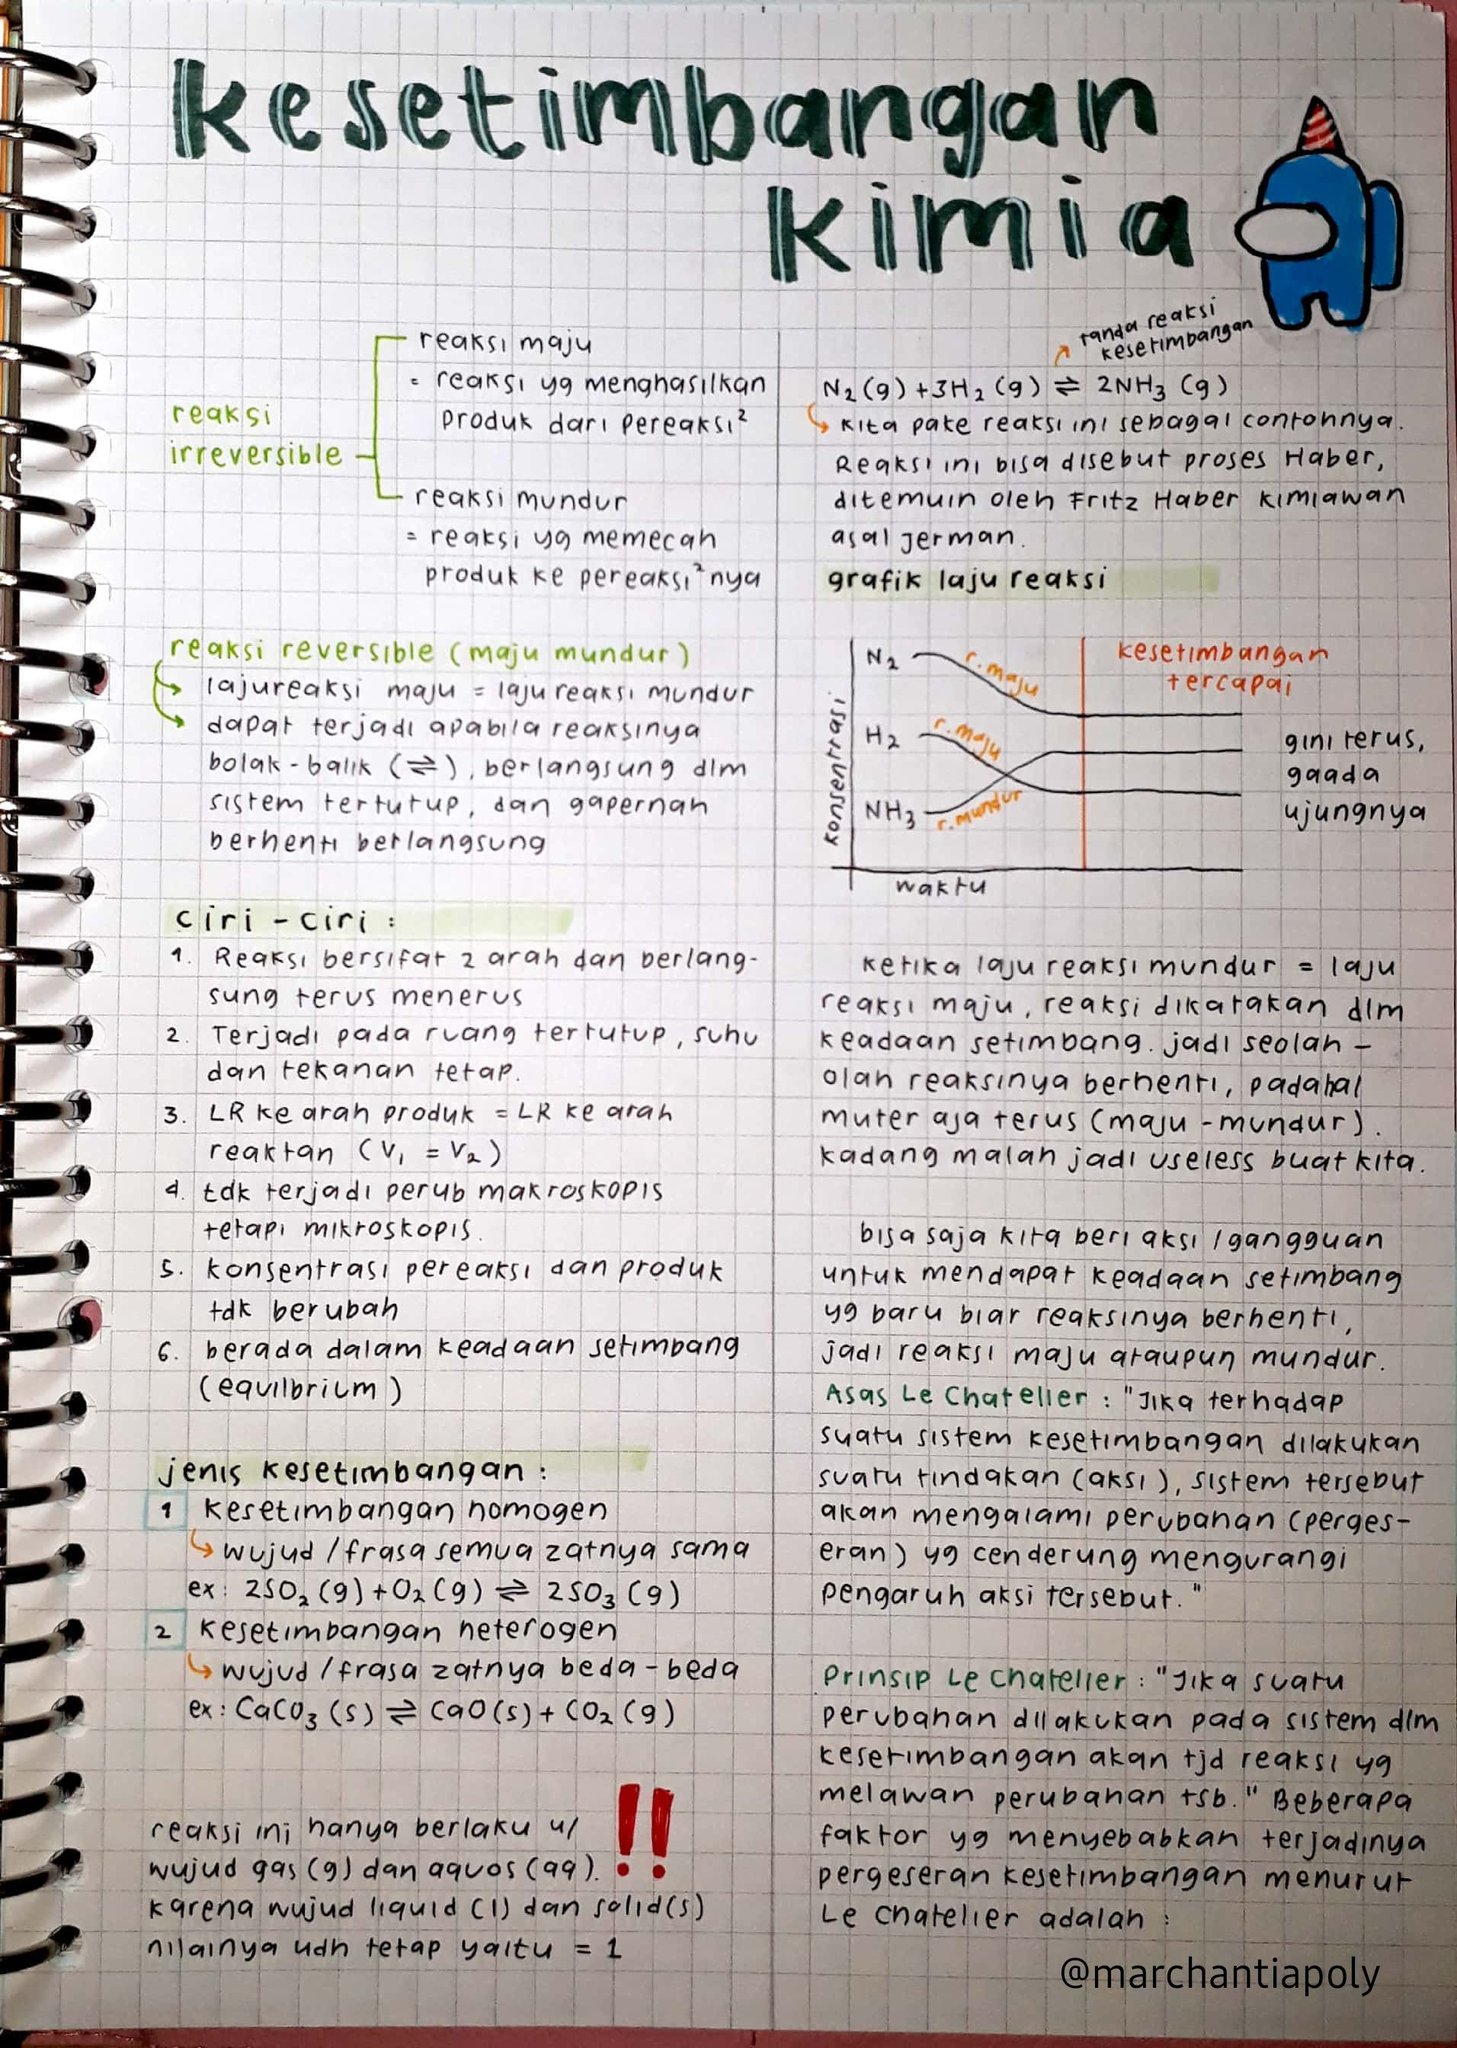 kesetimbangan
kimia
reaksi
irreversible
reaksi maju
= reaksi yg menghasilkan
produk dari pereaksi²
reaksi mundur
= reaksi yg memecah
produk ke pereaksi²nya
reaksi reversible (maju mundur)
laju reaksi maju = laju reaksi mundur
dapat terjadi apabila reaksinya
bolak-balik (⇌), berlangsung dlm
sistem tertutup, dan gapernah
berhenti berlangsung
ciri - ciri :
1. Reaksi bersifat 2 arah dan berlang-
sung terus menerus
2. Terjadi pada ruang tertutup, suhu
dan tekanan tetap.
3. LR ke arah produk = LR ke arah
reaktan (V₁ = V₂)
4. tdk terjadi perub makroskopis
tetapi mikroskopis.
5. konsentrasi pereaksi dan produk
tdk berubah
6. berada dalam keadaan setimbang
(equilbrium)
jenis kesetimbangan :
1 kesetimbangan homogen
wujud / frasa semua zatnya sama
ex: 2SO₂ (g) + O₂ (g) ⇌ 2SO₃ (g)
2 kesetimbangan heterogen
wujud / frasa zatnya beda-beda
ex: CaCO₃ (s) ⇌ CaO(s) + CO₂ (g)
reaksi ini hanya berlaku u/
wujud gas (g) dan aquos (aq). !!
karena wujud liquid (l) dan solid(s)
nilainya udh tetap yaitu = 1
tanda reaksi
kesetimbangan
N₂ (g) + 3H₂ (g) ⇌ 2NH₃ (g)
kita pake reaksi ini sebagai contohnya.
Reaksi ini bisa disebut proses Haber,
ditemuin oleh Fritz Haber kimiawan
asal Jerman.
grafik laju reaksi
konsentrasi
N₂
r. maju
H₂
r. maju
NH₃
r. mundur
waktu
kesetimbangan
tercapai
gini terus,
gaada
ujungnya
ketika laju reaksi mundur = laju
reaksi maju, reaksi dikatakan dlm
keadaan setimbang. jadi seolah -
olah reaksinya berhenti, padahal
muter aja terus (maju - mundur).
kadang malah jadi useless buat kita.
bisa saja kita beri aksi / gangguan
untuk mendapat keadaan setimbang
yg baru biar reaksinya berhenti,
jadi reaksi maju ataupun mundur.
Asas Le Chatelier : "Jika terhadap
suatu sistem kesetimbangan dilakukan
suatu tindakan (aksi), sistem tersebut
akan mengalami perubahan (perges-
eran) yg cenderung mengurangi
pengaruh aksi tersebut."
Prinsip Le Chatelier : "Jika suatu
perubahan dilakukan pada sistem dlm
kesetimbangan akan tjd reaksi yg
melawan perubahan tsb." Beberapa
faktor yg menyebabkan terjadinya
pergeseran kesetimbangan menurut
Le Chatelier adalah :
@marchantiapoly